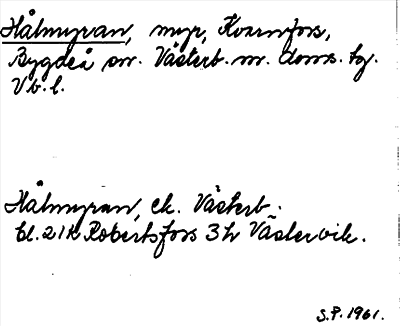 Hålmyran, myr, Kvarnfors,
Bygdeå sn. Västerb. m. doms. tg.
Vb. l.
Hålmyran, ek. Västerb.
bl. 21K Robertsfors 3h Västervik.
S.P. 1961.